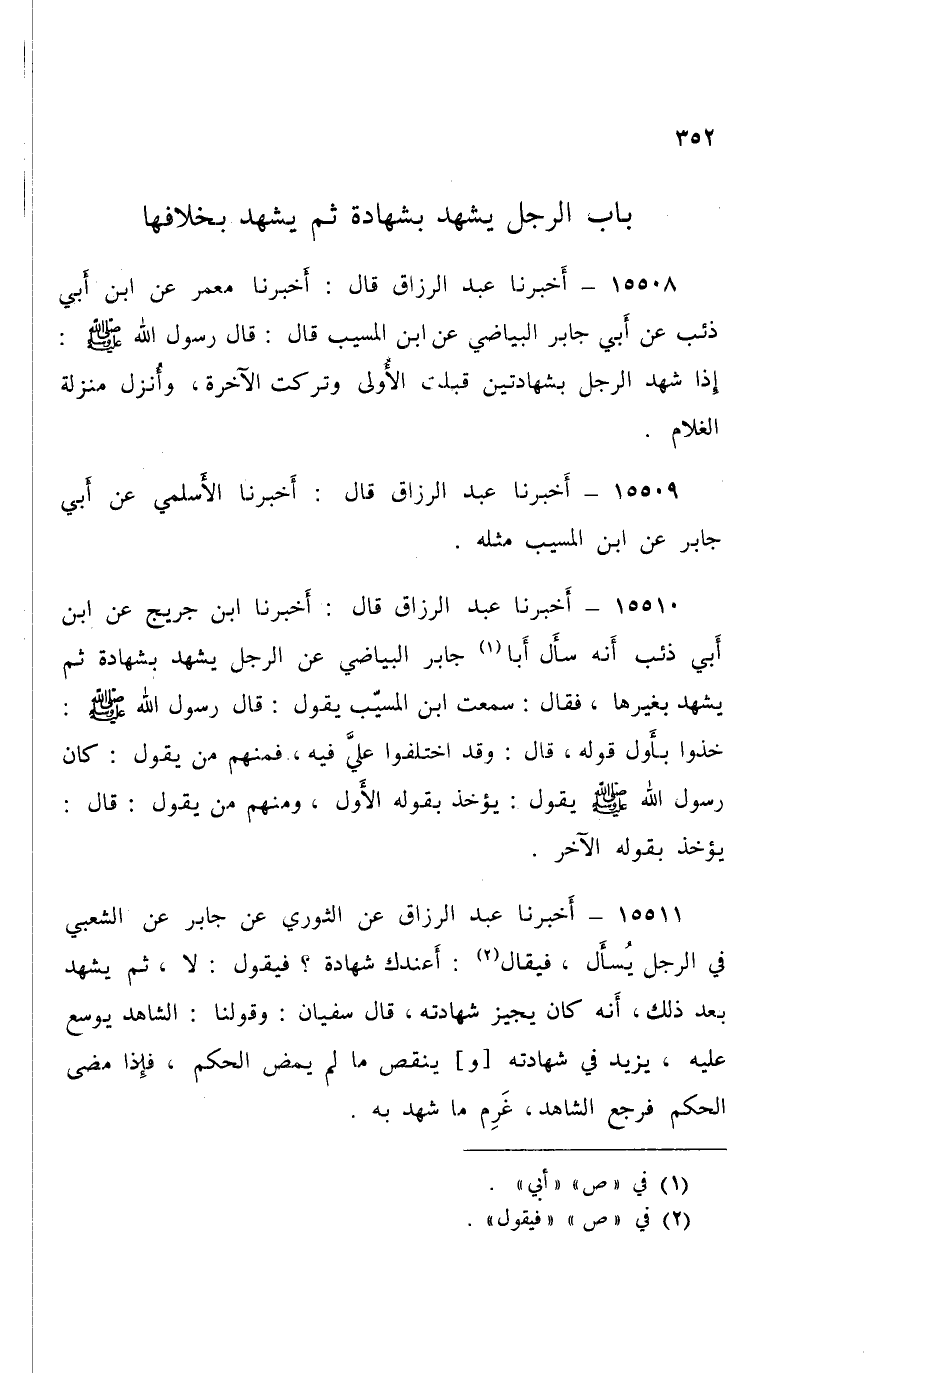 ٣٥٢
باب الرجل يشهد بشهادة ثم يشهد بخلافها
١٥٥٠٨ – أَخبرنا عبد الرزاق قال : أَخبرنا معمر عن ابن أَبي
ذئب عن أَبي جابر البياضي عن ابن المسيب قال : قال رسول الله ﷺ :
إذا شهد الرجل بشهادتين قبلت الأُولى وتركت الآخرة ، وأُنزل منزلة
الغلام .
١٥٥٠٩ – أَخبرنا عبد الرزاق قال : أَخبرنا الأَسلمي عن أَبي
جابر عن ابن المسيب مثله .
١٥٥١٠ – أَخبرنا عبد الرزاق قال : أَخبرنا ابن جريج عن ابن
أَبي ذئب أَنه سأَل أَبا(١) جابر البياضي عن الرجل يشهد بشهادة ثم
يشهد بغيرها ، فقال : سمعت ابن المسيّب يقول : قال رسول الله ﷺ :
خذوا بأَول قوله ، قال : وقد اختلفوا عليَّ فيه ، فمنهم من يقول : كان
رسول الله ﷺ يقول : يؤخذ بقوله الأَول ، ومنهم من يقول : قال :
يؤخذ بقوله الآخر .
١٥٥١١ – أَخبرنا عبد الرزاق عن الثوري عن جابر عن الشعبي
في الرجل يُسأَل ، فيقال(٢) : أَعندك شهادة ؟ فيقول : لا ، ثم يشهد
بعد ذلك ، أَنه كان يجيز شهادته ، قال سفيان : وقولنا : الشاهد يوسع
عليه ، يزيد في شهادته [و] ينقص ما لم يمض الحكم ، فإِذا مضى
الحكم فرجع الشاهد ، غَرِم ما شهد به .
(١) في « ص» «أبي» .
(٢) في « ص » «فيقول» .